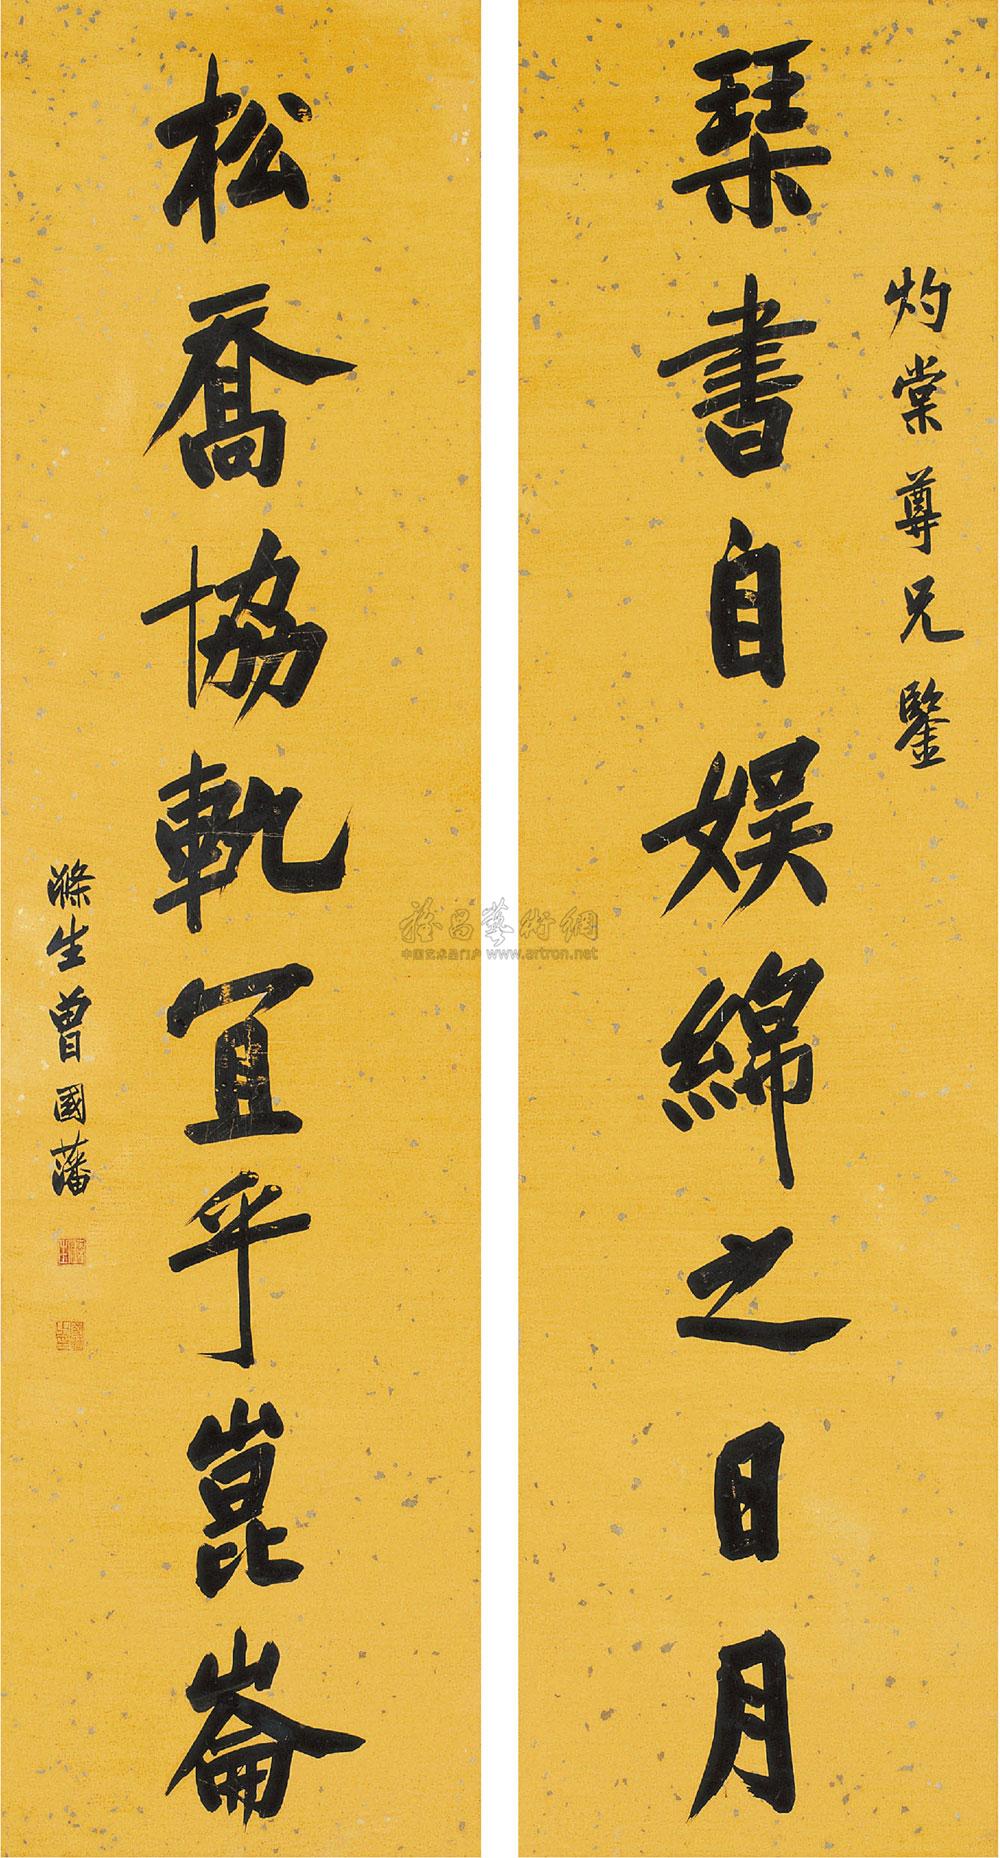 灼棠尊兄鑒
琹書自娱綿之日月
松喬協軌宜乎崑崙
滌生曾國藩
雅昌藝術網
中国艺术品门户 www.artron.net